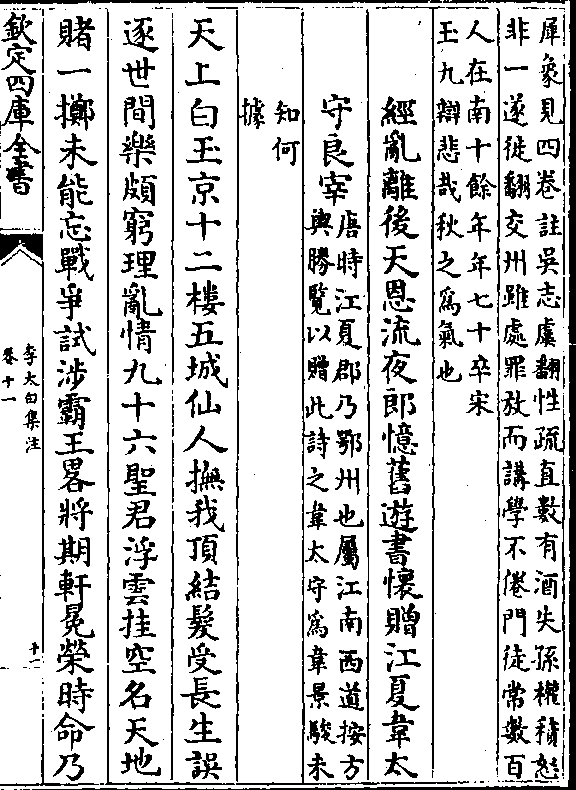 犀象見四卷註吳志虞翻性疏直數有酒失孫權積怒
非一遂徙翻交州雖處罪放而講學不倦門徒常數百
人在南十餘年年七十卒宋
玉九辯悲哉秋之為氣也
經亂離後天恩流夜郎憶舊遊書懷贈江夏韋太
守良宰
唐時江夏郡乃鄂州也屬江南西道按方
輿勝覽以贈此詩之韋太守為韋景駿未
知何
據
天上白玉京十二樓五城仙人撫我頂結髮受長生誤
逐世間樂頗窮理亂情九十六聖君浮雲挂空名天地
賭一擲未能忘戰爭試涉霸王畧將期軒冕榮時命乃
欽定四庫全書
李太白集注
卷十一
十一